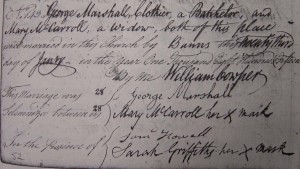 George Marshall, Clothier, a Batchelor, and
Mary McCarroll, a Widow, both of this Place
were married in this Church by Banns this twenty third
day of June in the Year One Thousand eight Hundred
By me William Cowper
This Marriage was 28 George Marshall
Solemnized between us 28 Mary McCarroll her X mark
In the Presence of Saml
Sarah Griffiths her X mark